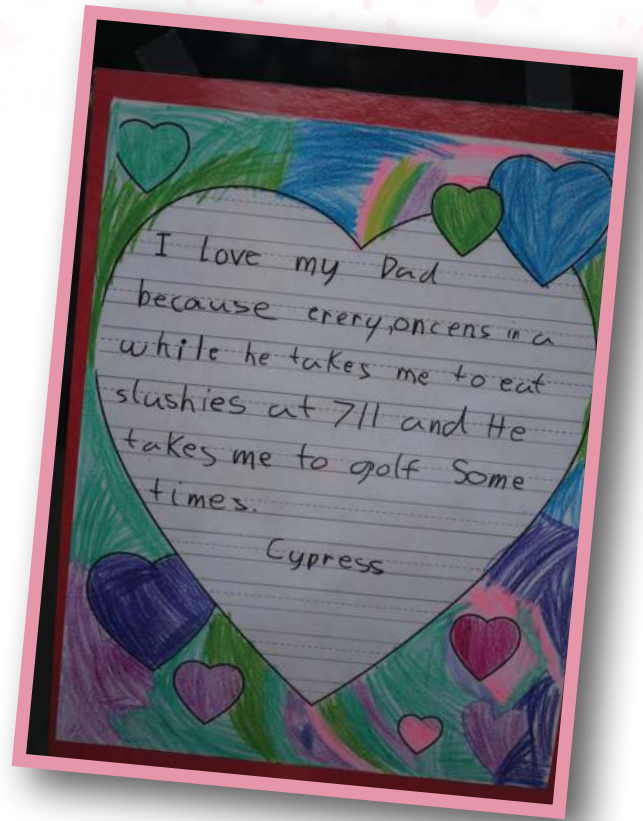 I Love my Dad
because erery,oncens in a
while he takes me to eat
slushies at 711 and He
takes me to golf Some
times.
Cypress